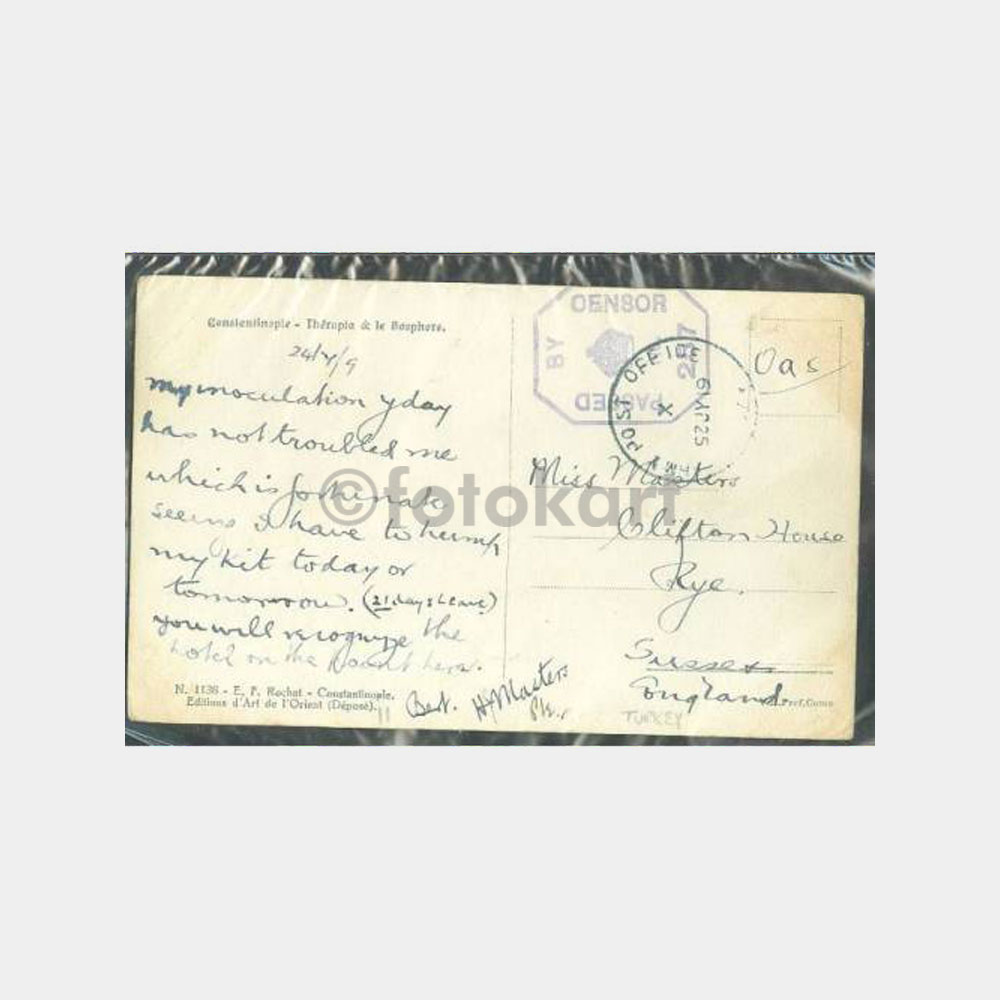 Constantinople - Thérapia & le Bosphore.
my inoculation yday
has not troubled me
which is fortunate
seems I have to hump
my kit today or
tomorrow. (21 days leave)
you will recognize the
hotel on the here.
N. 1136 - E. F. Rochat - Constantinople.
Editions d'Art de l'Orient (Déposé).
Best. H Masters
PASSED BY CENSOR 287
POST OFFICE
X
25
Oas
Miss Masters
Clifton House
Rye.
Sussex
England
TURKEY
©fotokart